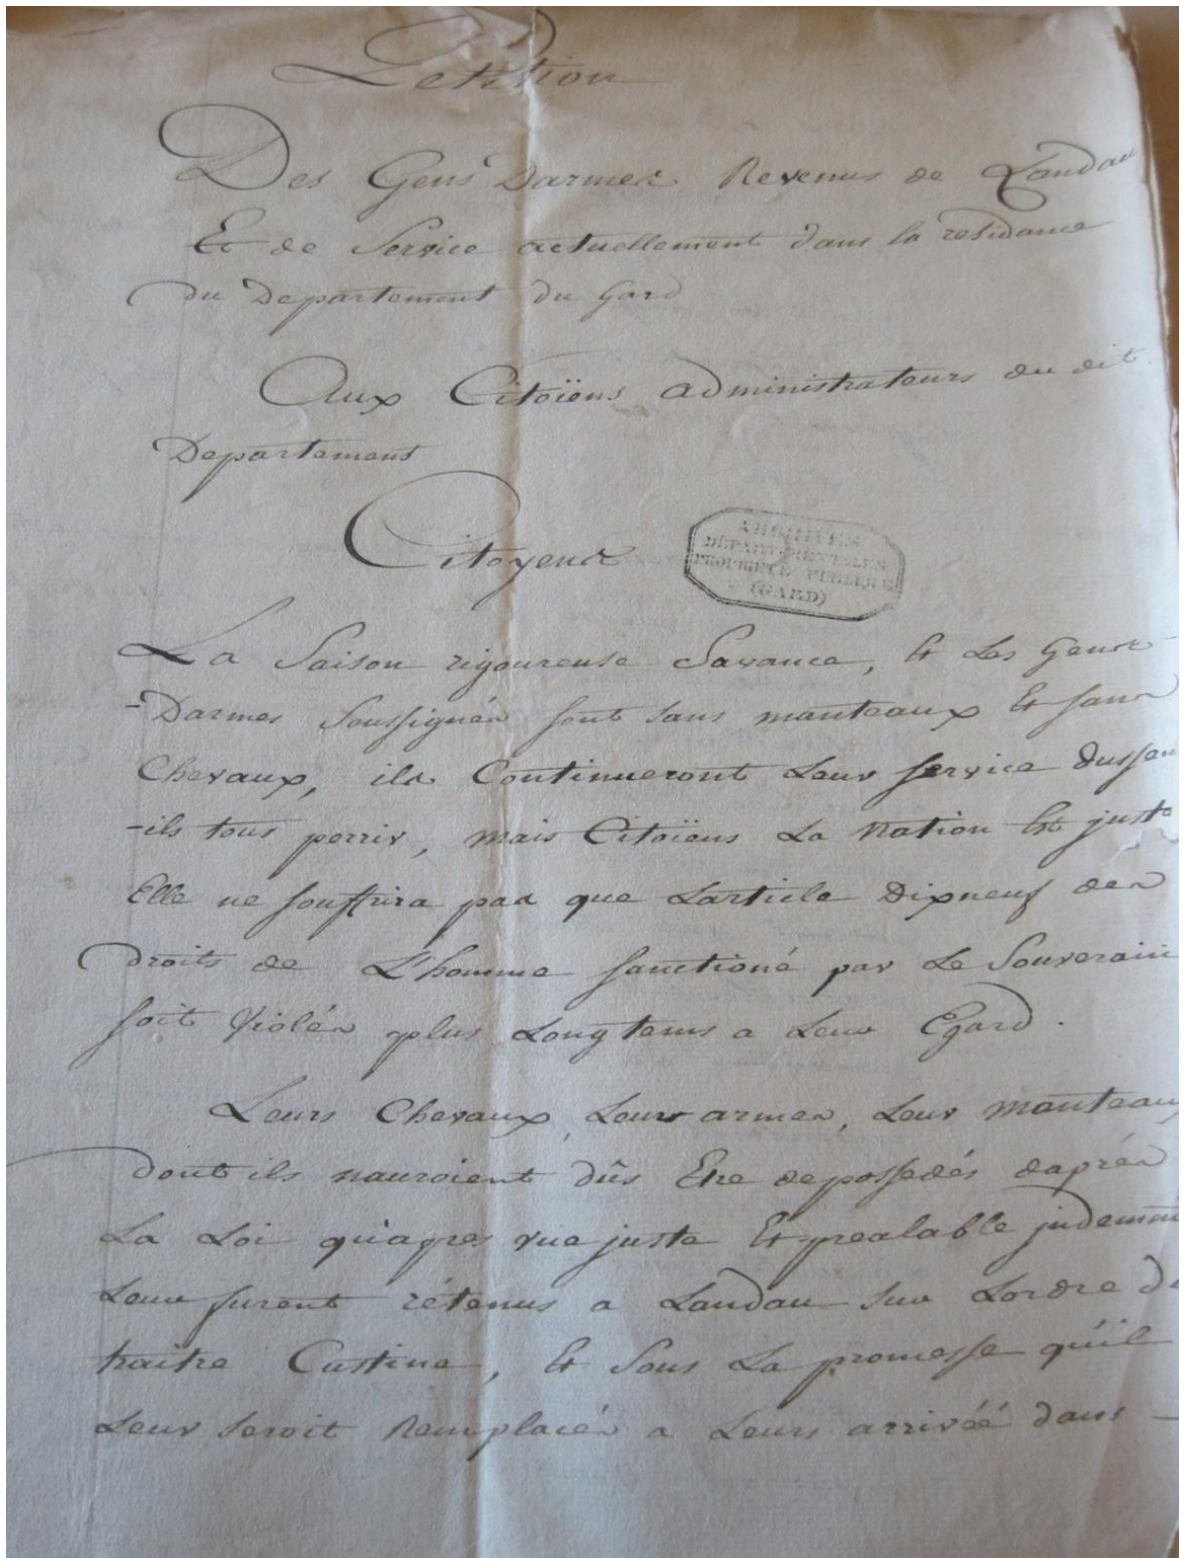 Petition
Des Gens Darmes Revenus de Landau
Et de Service actuellement dans la residance
du Departement du Gard
Aux Citoïens administrateurs du dit
Departement
Citoyens
ARCHIVES
DEPARTEMENTALES
PROPRIETE PUBLIQUE
(GARD)
La Saison rigoureuse Savance, Et Les Gens
-Darmes Soussignés sont sans manteaux Et sans
Chevaux, ils Continueront Leur service dussen
-ils tous perrir, mais Citoïens La Nation Est juste
Elle ne souffrira pas que Larticle Dixneuf des
droits de L'homme sanctioné par Le Souverain
soit violés plus Longtems a Leur Egard.
Leurs Chevaux, Leurs armes, Leur manteaux
dont ils nauroient dûs Etre depossedés daprés
La Loi qu'apres une juste Et prealable indemni
Leur furent rétenus a Landau sur Lordre du
traitre Custine, Et Sous La promesse qu'il
Leur seroit Remplacés a Leurs arrivéé dans